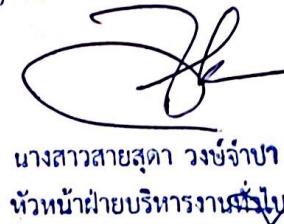 นางสาวสายสุดา วงษ์จำปา
หัวหน้าฝ่ายบริหารงานทั่วไป